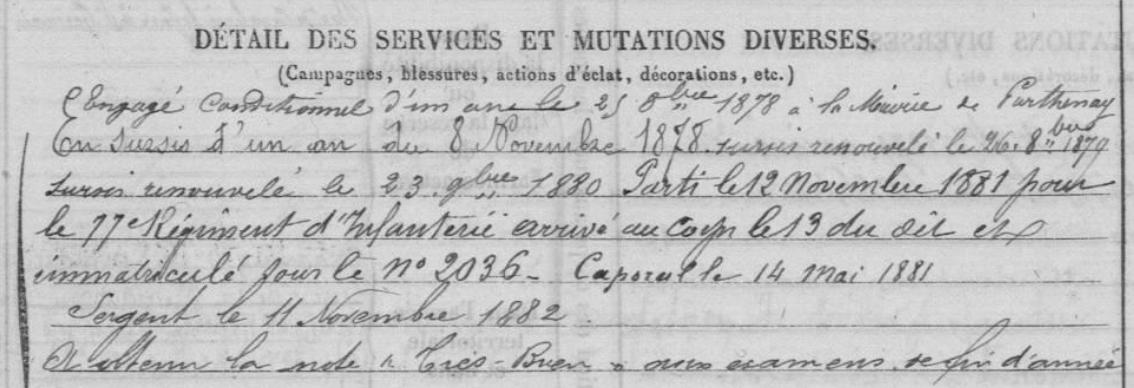 DÉTAIL DES SERVICES ET MUTATIONS DIVERSES.
(Campagnes, blessures, actions d'éclat, décorations, etc.)
Engagé Conditionnel d'un an le 25 8bre 1878 à la Mairie de Parthenay
En sursis d'un an du 8 Novembre 1878. sursis renouvelé le 26. 8bre 1879
sursis renouvelé le 23 9bre 1880 Parti le 12 Novembre 1881 pour
le 77e Régiment d'Infanterie arrivé au Corps le 13 du dit et
immatriculé sous le No 2036 - Caporal le 14 Mai 1881
Sergent le 11 Novembre 1882
A obtenu la note « Très-Bien » aux examens de fin d'année